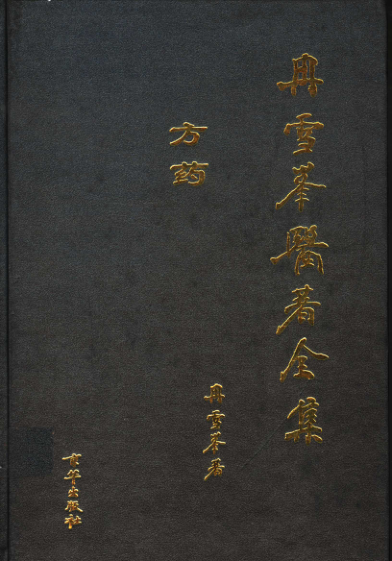 冉雪峯醫著全集
方药
冉雪峯著
京华出版社